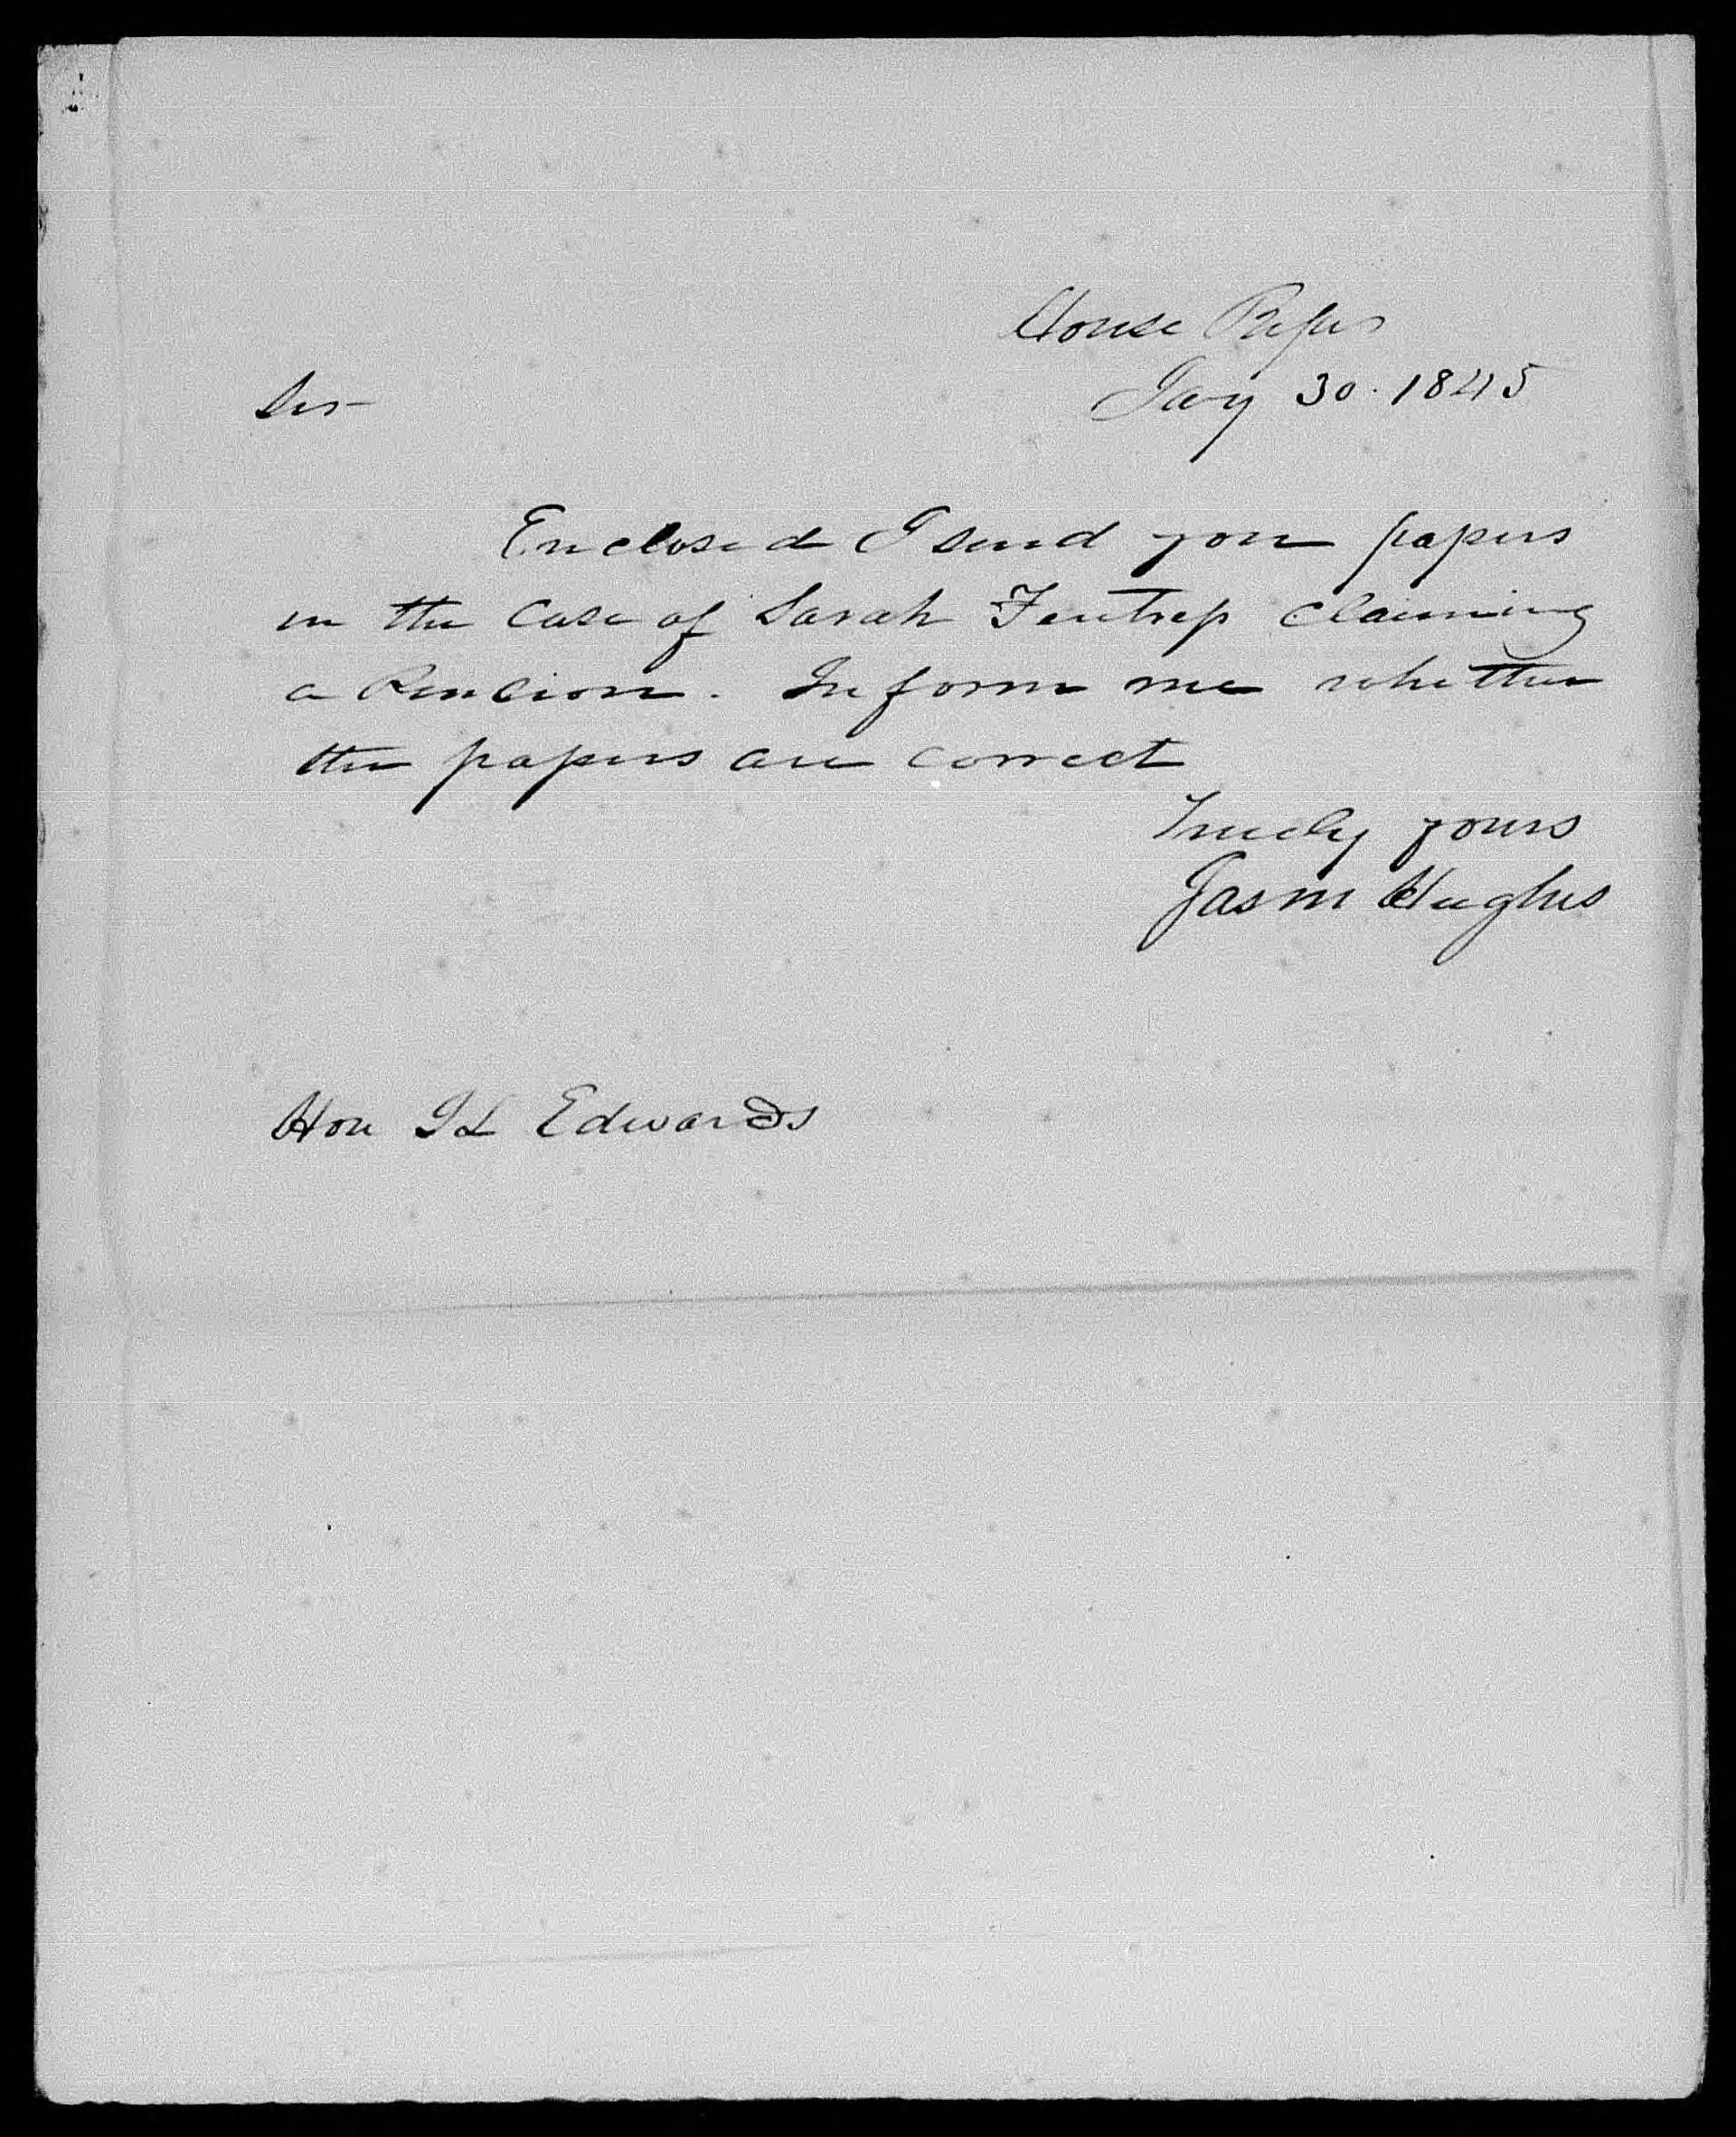 House Reps
Jany 30. 1845
Sir
Enclosed I send you papers
in the case of Sarah Fentrep claiming
a Pencion. Inform me whether
the papers are correct
Truely yours
Jas M Hughes
Hon J L Edwards